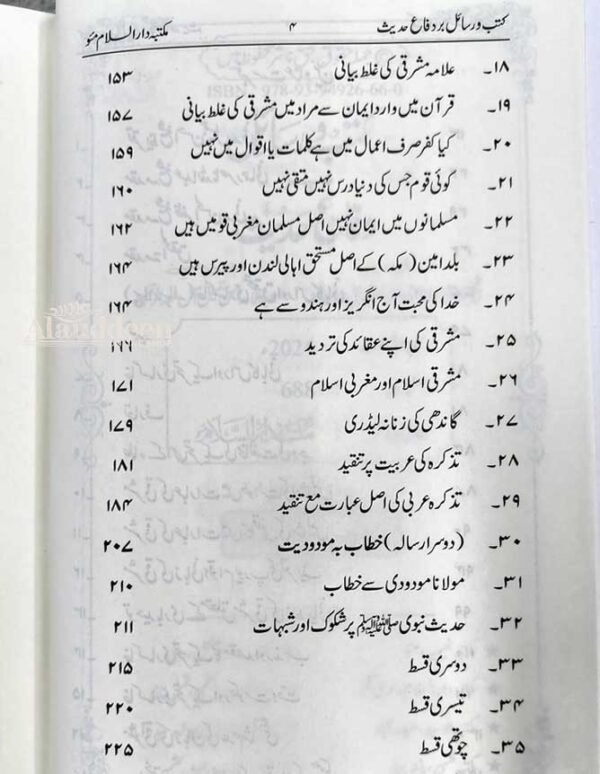 کتب و رسائل بر دفاع حدیث ۴ مکتبہ دار السلام مئو
۱۸۔ علامہ مشرقی کی غلط بیانی ۱۵۳
۱۹۔ قرآن میں وارد ایمان سے مراد میں مشرقی کی غلط بیانی ۱۵۷
۲۰۔ کیا کفر صرف اعمال میں ہے کلمات یا اقوال میں نہیں ۱۵۹
۲۱۔ کوئی قوم جس کی دنیا درس نہیں متقی نہیں ۱۶۰
۲۲۔ مسلمانوں میں ایمان نہیں اصل مسلمان مغربی قومیں ہیں ۱۶۲
۲۳۔ بلد امین (مکہ) کے اصل مستحق اہالی لندن اور پیرس ہیں ۱۶۴
۲۴۔ خدا کی محبت آج انگریز اور ہندو سے ہے ۱۶۴
۲۵۔ مشرقی کی اپنے عقائد کی تردید ۱۶۶
۲۶۔ مشرقی اسلام اور مغربی اسلام ۱۷۱
۲۷۔ گاندھی کی زنانہ لیڈری ۱۷۹
۲۸۔ تذکرہ کی عربیت پر تنقید ۱۸۱
۲۹۔ تذکرہ عربی کی اصل عبارت مع تنقید ۱۸۴
۳۰۔ (دوسرا رسالہ) خطاب بہ مودودیت ۲۰۷
۳۱۔ مولانا مودودی سے خطاب ۲۱۰
۳۲۔ حدیث نبوی ﷺ پر شکوک اور شبہات ۲۱۱
۳۳۔ دوسری قسط ۲۱۵
۳۴۔ تیسری قسط ۲۲۰
۳۵۔ چوتھی قسط ۲۲۵